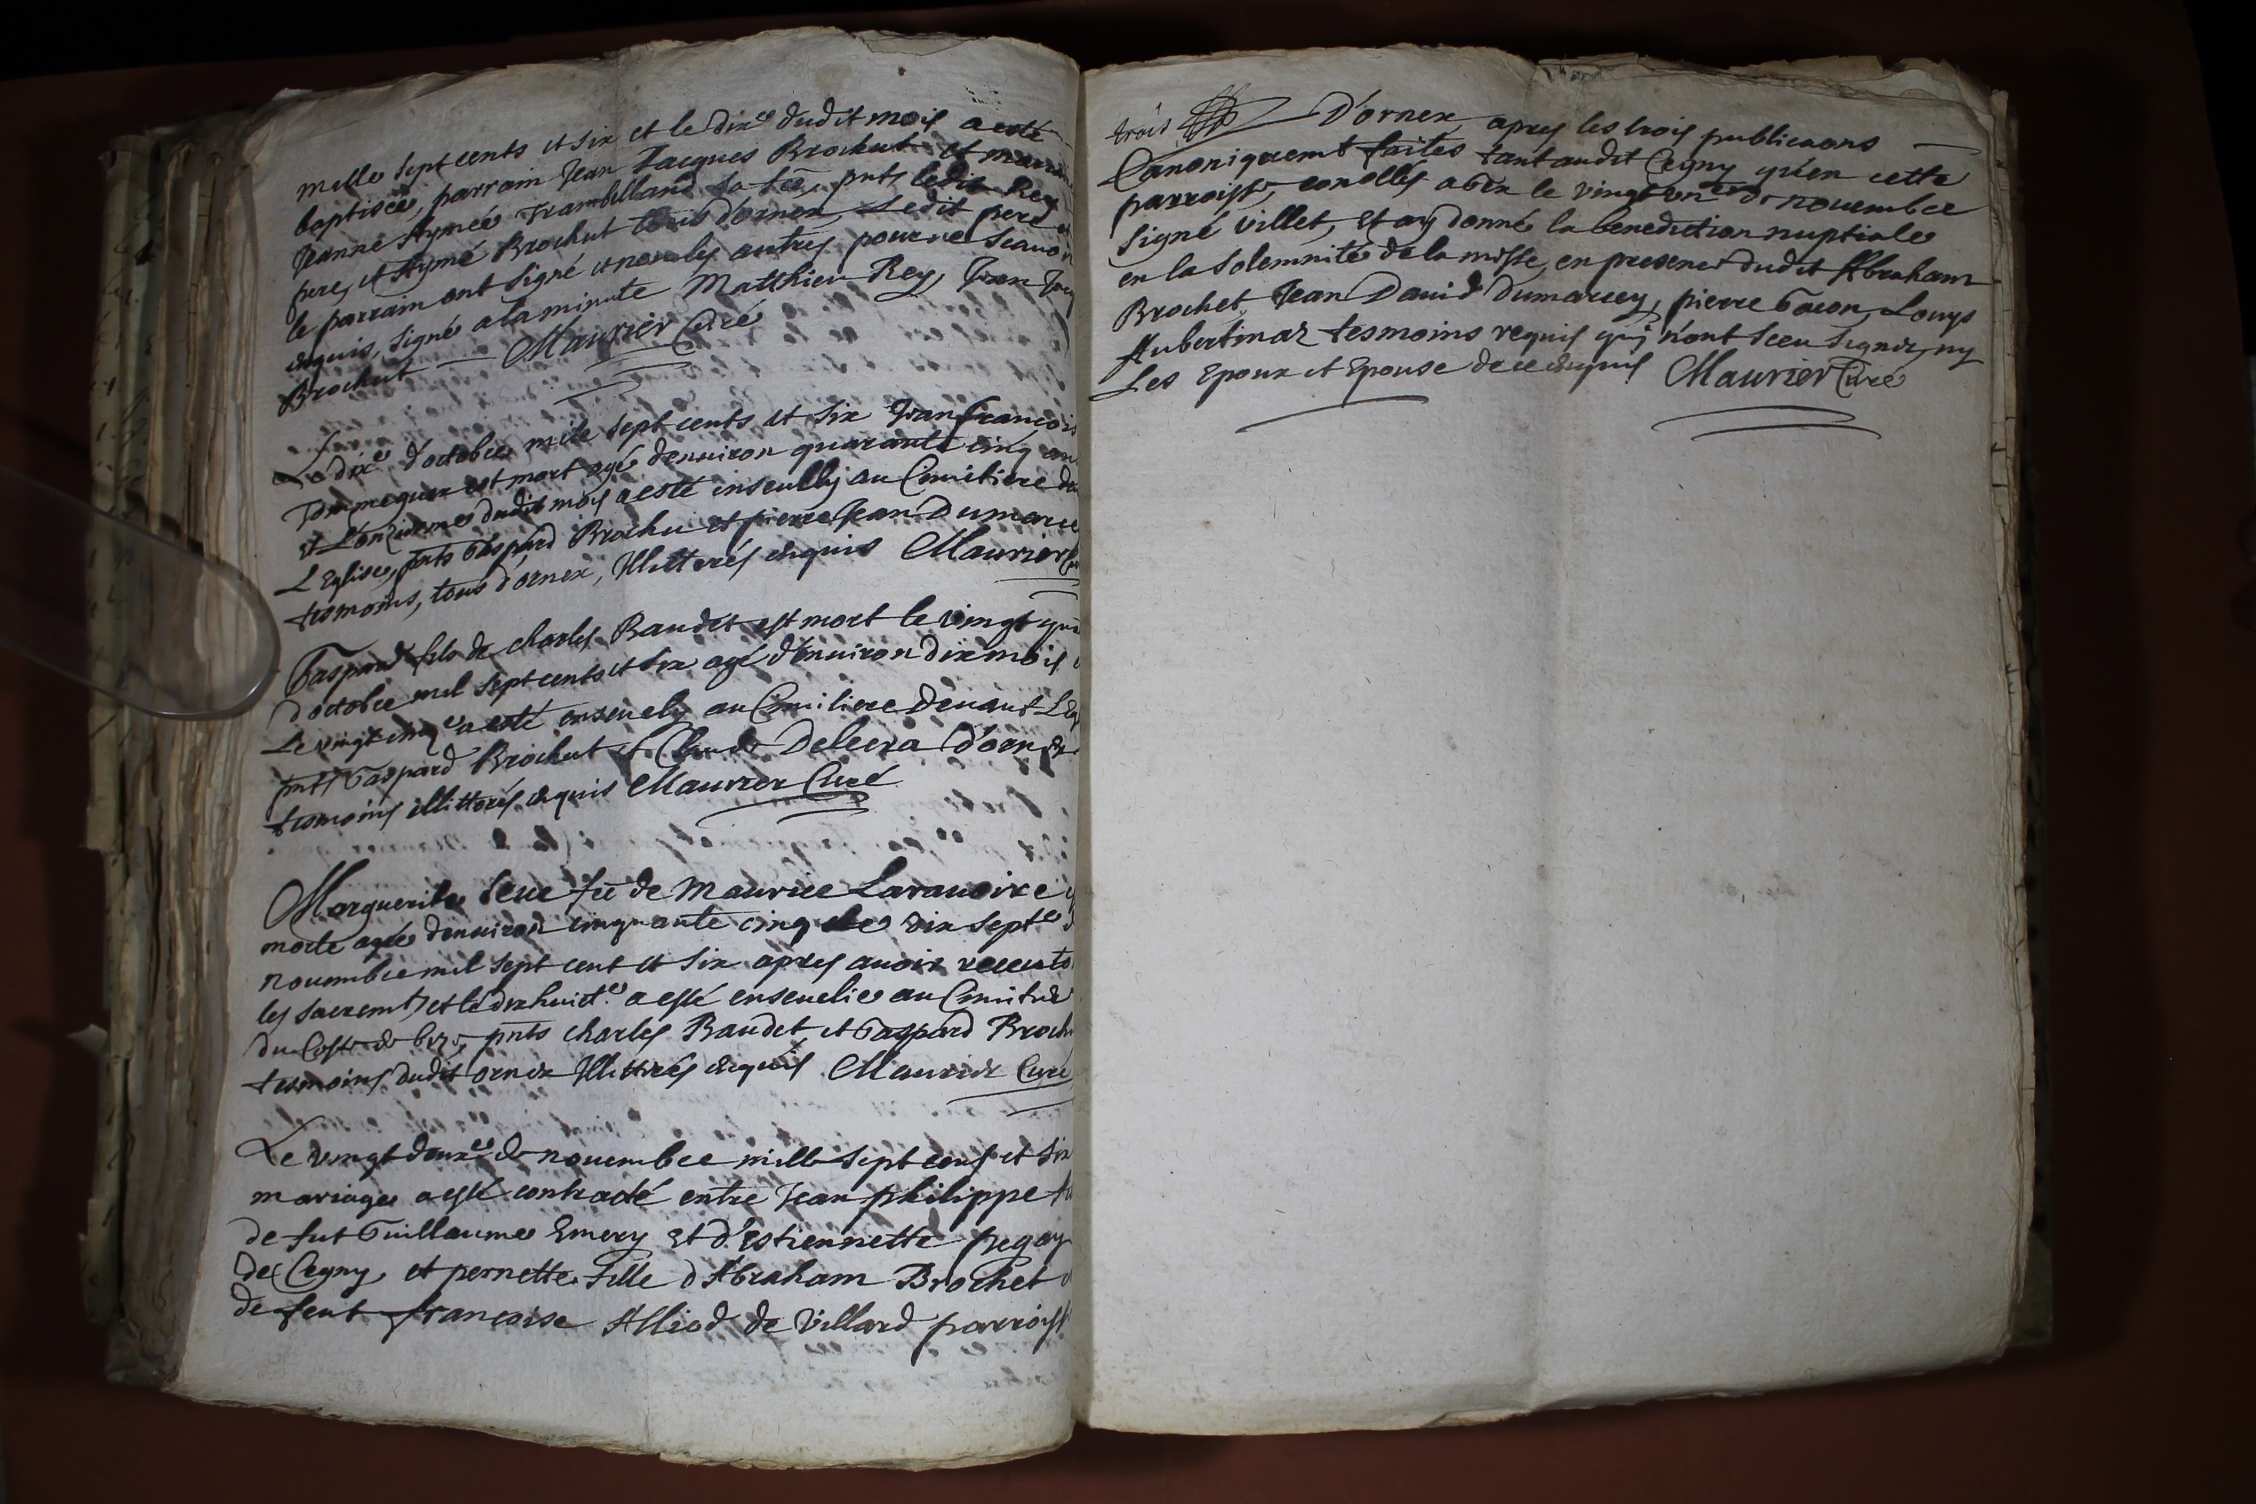 mille sept cents et six et le dixe dudit mois a esté
baptisée, parrain Jean Jacques Brochut et marraine
Jeanne Aymée Trambelland sa fe, pnts ledit Rey
pere, et Aymé Brochut tous d'ornex, Ledit pere et
le parrain ont signé et non les autres pour ne scauoir
enquis, signé a la minute Matthieu Rey, Jean Jacq
Brochut Maurier Curé
Le dixe d'octobre mile sept cents et six Jean françois
est mort agé d'enuiron quarante cinq ans
et L'onzieme dudit mois a esté enseuely au Cimitiere de
L'Eglise, pnts Gaspard Brochu et pierre Jean Dumarce
tesmoins, tous d'ornex, Illitterés enquis Maurier Cu
Gaspard fils de charles Baudet est mort le vingt qua
d'octobre mil sept cents et six agé d'enuiron dix mois
Le vingt cinqe a esté enseuely au Cimitiere deuant L'Eg
pnts Gaspard Brochut et Claude Delecra d'ornex
tesmoins illitterés enquis Maurier Curé
Marguerite feue fe de Maurice Larauoire
morte agée d'enuiron cinquante cinq le dix septe d
nouembre mil sept cent et six apres auoir receu to
les sacremts et le dix huicte a esté enseuelie au Cimitie
du Costé de bize, pnts charles Baudet, et Gaspard Broch
tesmoins dudit ornex Illitterés enquis Maurier Curé
Le vingt deuxe de nouembre mille sept cens et six
mariage a esté contracté entre Jean philippe
de fut Guillaume Emery et d'Estiennette pegay
de Cegny, et pernette fille d'Abraham Brochet
de feut françoise Alliod de Villard parroiss
trois D'ornex, apres les trois publicaons
Canoniquemt faites tant audit Cegny qu'en cette
parroisse, le vingt une de nouembre
signé villet, Et ay donné la benediction nuptiale
en la solemnité de la messe, en presence dudit Abraham
Brochet, Jean Dauid Dumarcey, pierre Louys
Hubertmaz tesmoins requis qui n'ont sceu signer, ny
Les Epoux et Epouse de ce enquis Maurier Curé